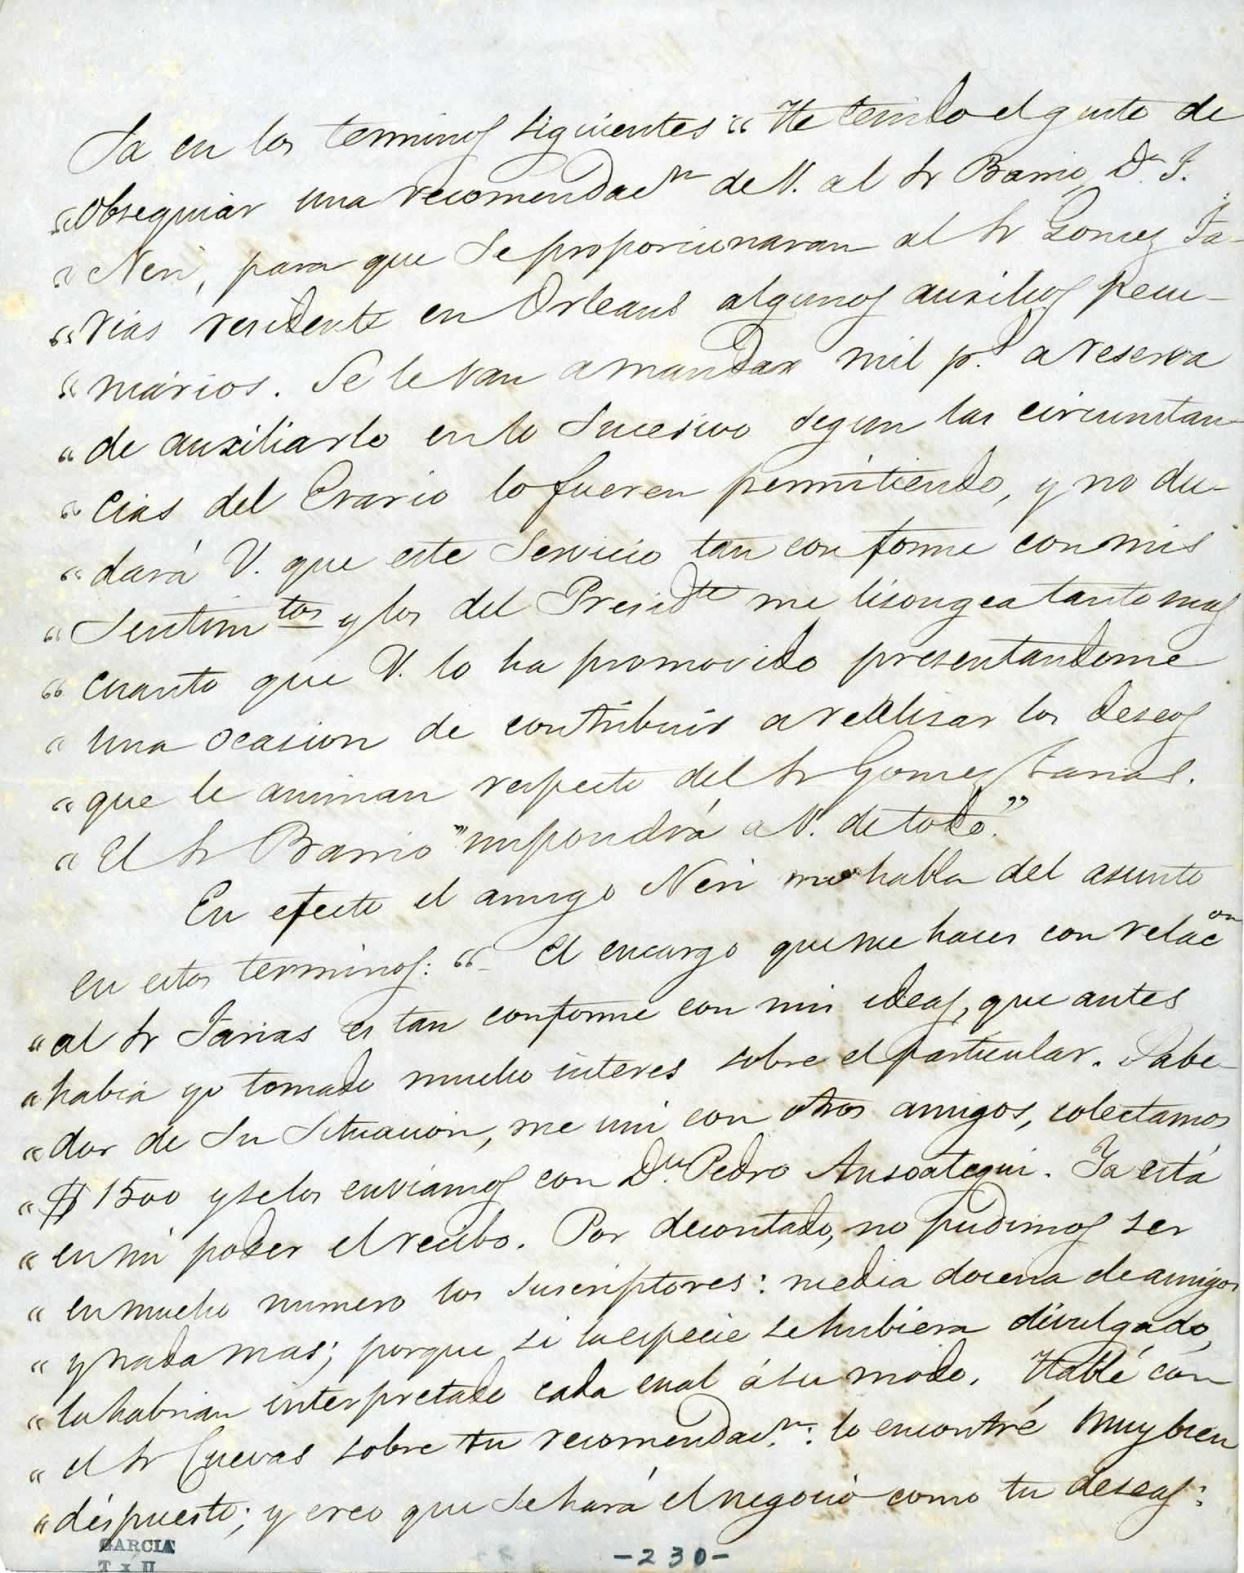 Sa en los terminos siguientes: "He tenido el gusto de
"obsequiar una recomendacn de V. al Sr Barrio, Dn J.
"Neri, para que se proporcionaran al Sr Gomez Fa-
"rias residente en Orleans algunos auxilios pecu-
"niarios. Se le van a mandar mil ps a reserva
"de auxiliarlo en lo sucesivo segun las circunstan-
"cias del Erario lo fueren permitiendo, y no du-
"dará V. que este servicio tan conforme con mis
"sentimtos y los del Presidte me lisongea tanto mas
"cuanto que V. lo ha promovido presentandome
"una ocasion de contribuir a realisar los deseos
"que le animan respecto del Sr Gomez Farias.
"El Sr Barrio "impondrá a V. de todo."
En efecto el amigo Neri me habla del asunto
en estos terminos: "El encargo que me haces con relacon
"al Sr Farias es tan conforme con mis ideas, que antes
"habia yo tomado mucho interes sobre el particular. Sabe-
"dor de su situacion, me uni con otros amigos, colectamos
"$1500 y se los enviamos con Dn Pedro Ansoategui. Ya está
"en mi poder el recibo. Por decontado, no pudimos ser
"en mucho numero los suscriptores: media docena de amigos
"y nada mas; porque si la especie se hubiera divulgado,
"la habrian interpretado cada cual á su modo. Hablé con
"el Sr Cuevas sobre tu recomendacn: lo encontré muy bien
"díspuesto; y creo que se hará el negocio como tu deseas:
GARCIA
-230-